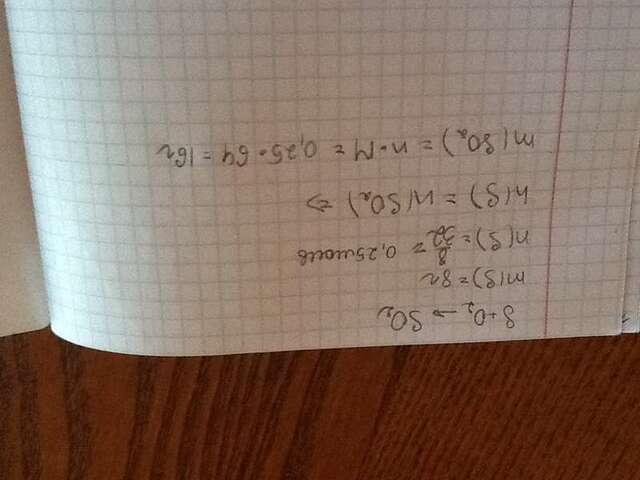 S+O₂ → SO₂
m(S) = 8г
n(S) = 8/32 = 0,25моль
n(S) = n(SO₂) ⇒
m(SO₂) = n·M = 0,25·64 = 16г